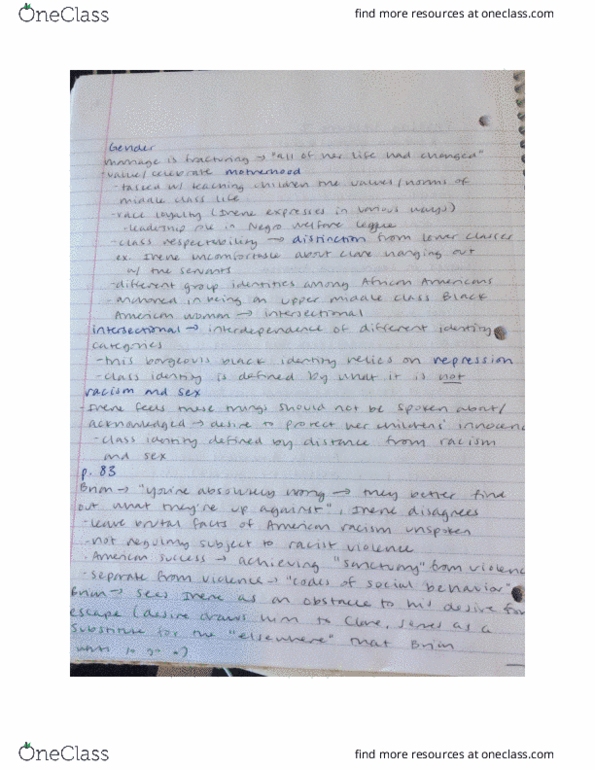 OneClass
find more resources at oneclass.com
Gender
marriage is fracturing → "all of her life had changed"
-value/celebrate motherhood
-tasked w/ teaching children the values/norms of
middle class life
-race loyalty (Irene expresses in various ways)
-leadership role in Negro welfare league
-class respectability → distinction from lower classes
ex. Irene uncomfortable about Clare hanging out
w/ the servants
-different group identities among African Americans
-anchored in being an upper middle class Black
American woman → intersectional
intersectional → interdependence of different identity
categories
-this borgeois black identity relies on repression
-class identity is defined by what it is not
racism and sex
-Irene feels these things should not be spoken about/
acknowledged → desire to protect her childrens' innocenc
-class identity defined by distance from racism
and sex
p. 83
Brian → "you're absolutely wrong → they better find
out what they're up against", Irene disagrees
-leave brutal facts of American racism unspoken
-not regularly subject to racist violence
-American success → achieving "sanctuary" from violenc
-separate from violence → "codes of social behavior"
Brian → sees Irene as an obstacle to his desire for
escape (desire draws him to Clare, serves as a
substitute for the "elsewhere" that Brian
wants to go
OneClass
find more resources at oneclass.com